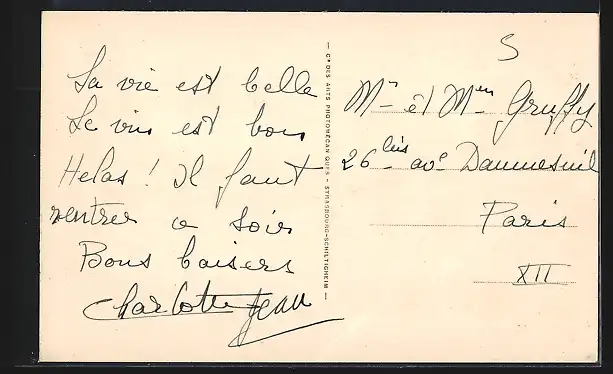 La vie est belle
Le vin est bon
Helas! il faut
rentrer a soir
Bons baisers
Charlotte Jean
— Cie DES ARTS PHOTOMÉCANIQUES - STRASBOURG-SCHILTIGHEIM —
S
Mr et Mme Gruffy
26 bis ave Daumesnil
Paris
XII